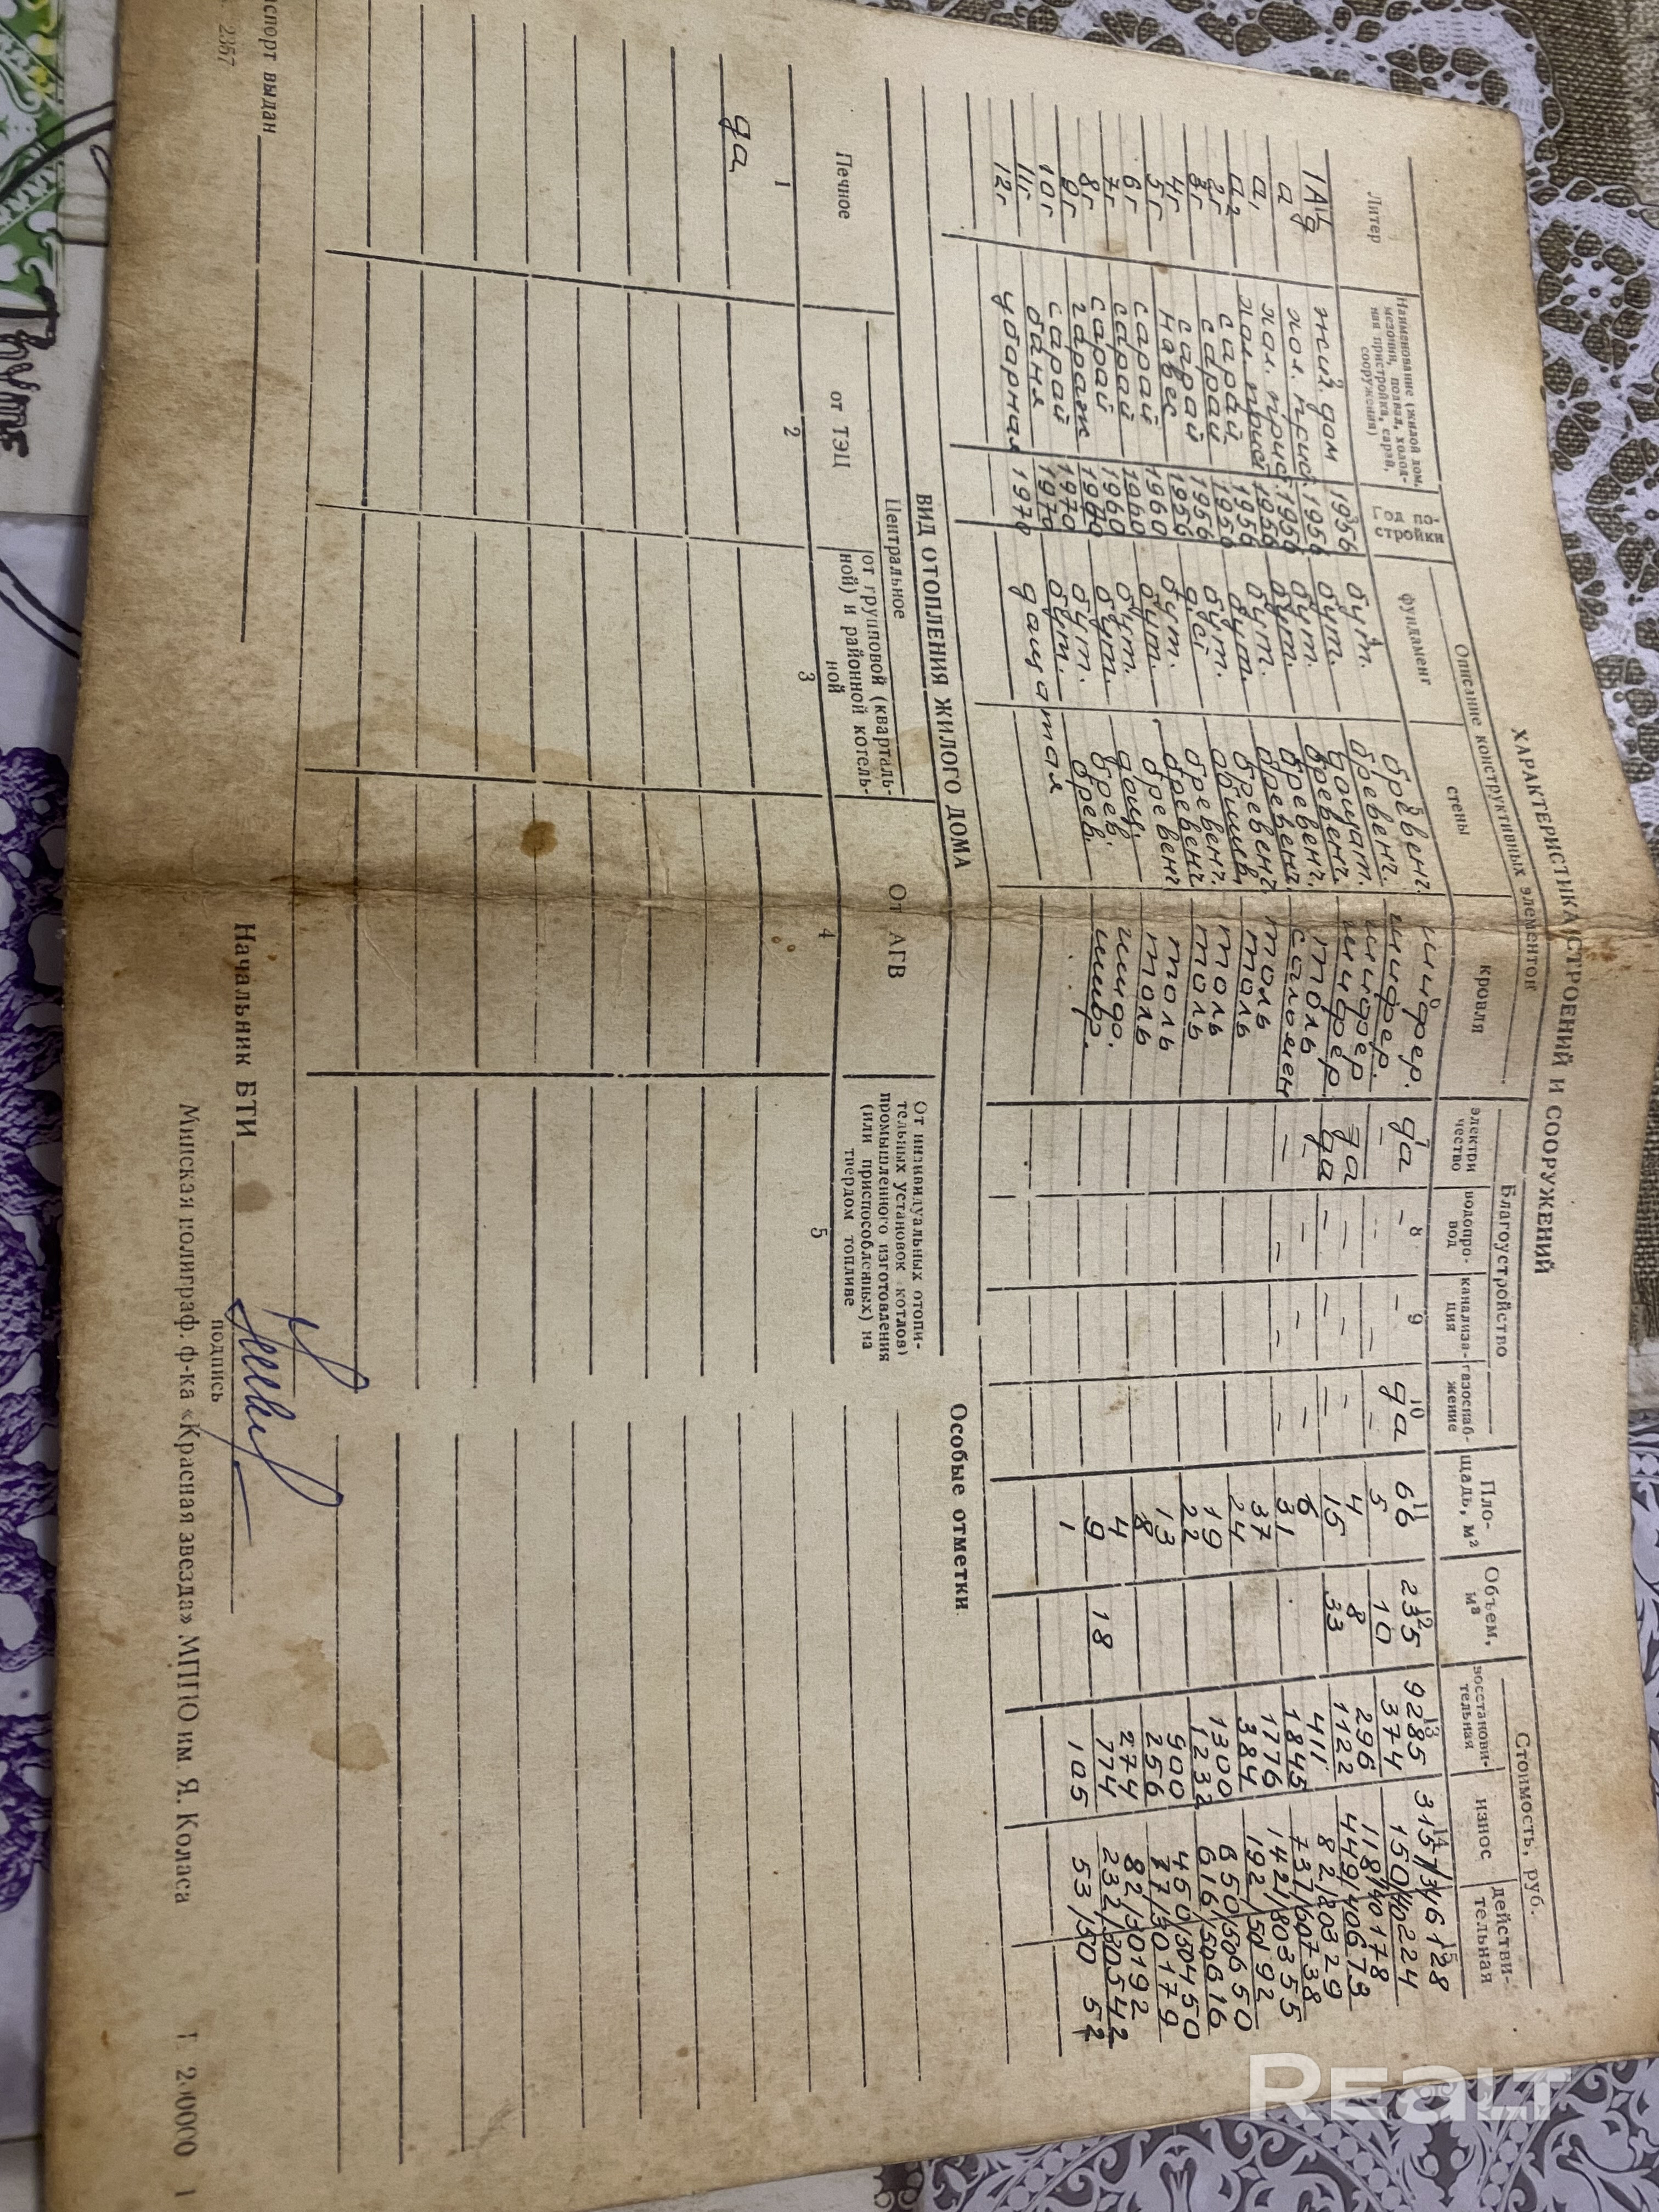 ХАРАКТЕРИСТИКА СТРОЕНИЙ И СООРУЖЕНИЙ
Литер
Наименование (жилой дом, мезонин, подвал, холодная пристройка, сарай, сооружения)
Год постройки
Описание конструктивных элементов
фундамент
стены
кровля
Благоустройство
электричество
водопровод
канализация
газоснабжение
Площадь, м²
Объем, м³
Стоимость, руб.
восстановительная
износ
действительная
3 4 5 6 7 8 9 10 11 12 13 14 15
жил. дом 1956 бут. бревенч. шифер. да – – да 66 235 9285 6128
а хол. прис. 1956 бут. бревенч. шифер. – – – – 5 10 374 150/40 224
а, хол. прис. 1956 бут. дощат. шифер 4 8 296 118/40 178
а2 хол. прис. 1956 бут. бревенч. шифер да – – – 15 33 1122 449/40 673
2г сарай 1956 бут. бревенч. толь да – – – 6 411 82/80 329
3г сарай 1956 бревенч. – – – – 31 1845
4г сарай 1956 бревенч. толь 37 1776
5г навес 1956 толь 24 384 192/50 192
6г сарай 1960 бут. бревенч. толь 19 1300 650/50 650
7г сарай 1960 бут. бревенч. толь 22 1232 616/50 616
8г сарай 1960 бут. бревенч толь 13 900 450/50 450
9г гараж бут. толь 8 256 77/30 179
10г сарай 1970 бут. брев. шиф. 4 274 82/30 192
11г баня 1970 бут. брев. шифр. 9 18 774 232/30 542
12г уборная 1970 дощатая 1 105 53/50 52
ВИД ОТОПЛЕНИЯ ЖИЛОГО ДОМА
Особые отметки
Печное
Центральное
от ТЭЦ
от групповой (квартальной) и районной котельной
От АГВ
От индивидуальных отопительных установок (котлов) промышленного изготовления (или приспособленных) на твердом топливе
1 2 3 4 5
да
спорт выдан
Начальник БТИ
подпись
2367
Минская полиграф. ф-ка «Красная звезда» МППО им. Я. Коласа
REALT